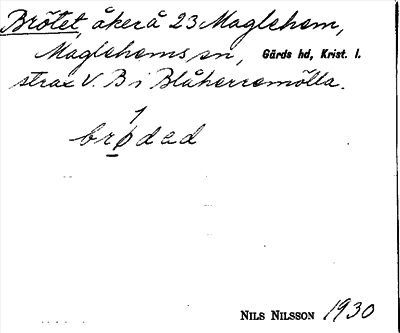 Brötet, åker å 23 Maglehem,
Maglehems sn, Gärds hd, Krist. l.
strax V. B i Blåherremölla.
1
brødəd
NILS NILSSON 1930